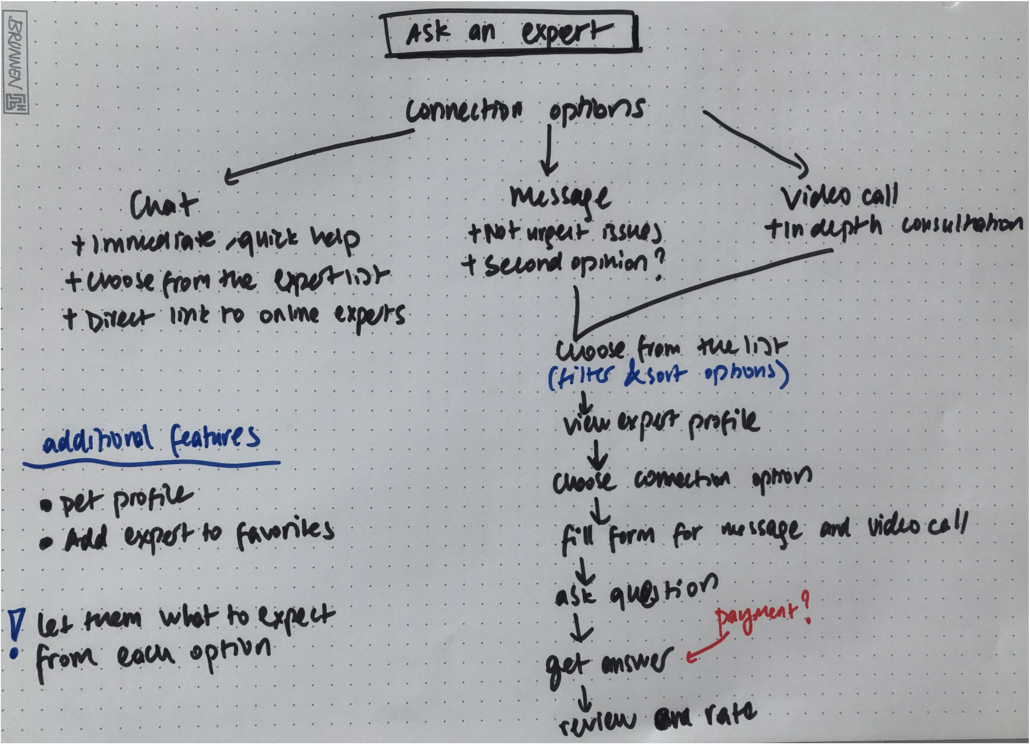 BRUNNEN
Ask an expert
Connection options
Chat
+ Immediate, quick help
+ Choose from the expert list
+ Direct link to online experts
Message
+ Not urgent issues
+ Second opinion?
Video call
+ In depth consultation
Choose from the list
(filter & sort options)
view expert profile
choose connection option
fill form for message and video call
ask question
payment?
get answer
review and rate
additional features
• pet profile
• Add expert to favorites
! Let them what to expect
from each option